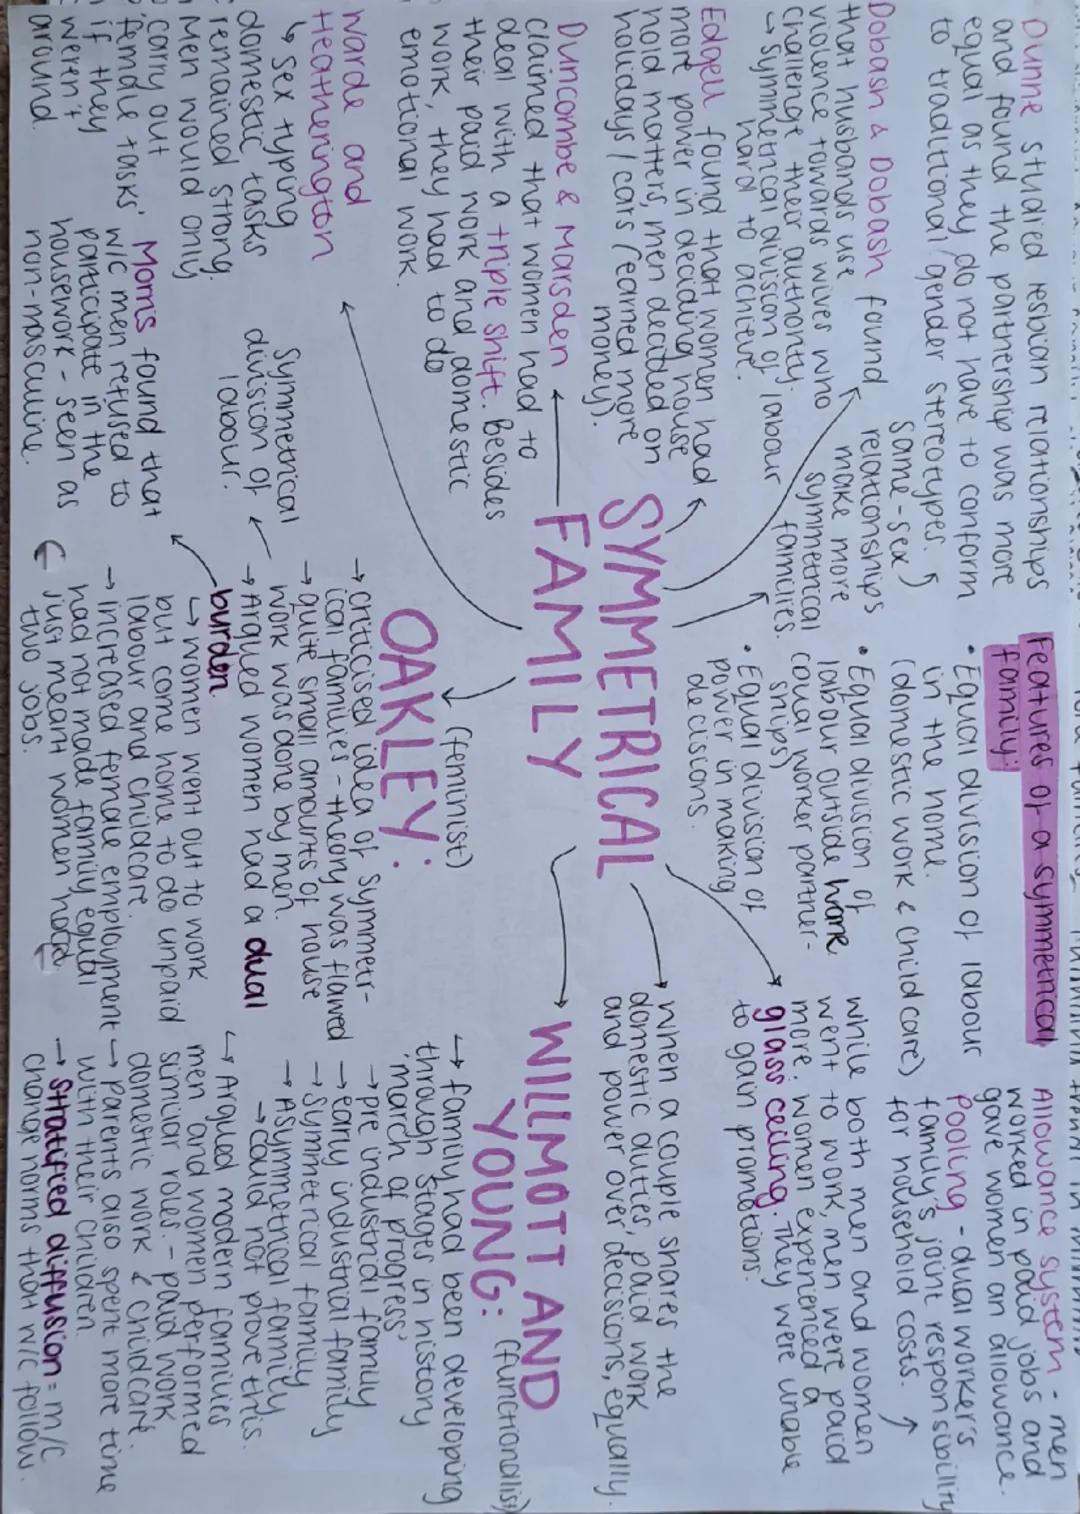 Dunne studied lesbian relationships
and found the partnership was more
equal as they do not have to conform
to traditional gender stereotypes.
same-sex
relationships
make more
symmetrical
families.
Dobash & Dobash found
that husbands use
violence towards wives who
challenge their authority.
↳ symmetrical division of labour
hard to achieve.
Edgell found that women had
more power in deciding house
hold matters, men decided on
holidays / cars (earned more
money).
Duncombe & Marsden
claimed that women had to
deal with a triple shift. Besides
their paid work and domestic
work, they had to do
emotional work.
Warde and
Heatherington
↳ Sex typing
domestic tasks
remained strong.
Men would only
carry out
'female tasks'
if they
weren't
around.
Features of a symmetrical
family:
• Equal division of labour
in the home.
(domestic work & childcare)
• Equal division of
labour outside home
(dual worker partner-
ships)
• Equal division of
power in making
decisions.
Allowance system - men
worked in paid jobs and
gave women an allowance.
Pooling - dual worker's
family's joint responsibility
for household costs.
while both men and women
went to work, men were paid
more. women experienced a
glass ceiling. They were unable
to gain promotions.
SYMMETRICAL
FAMILY
→ when a couple shares the
domestic duties, paid work
and power over decisions, equally.
OAKLEY:
(feminist)
→ criticised idea of symmetr-
ical families - theory was flawed
→ quite small amounts of house
work was done by men.
→ Argued women had a dual
burden.
↳ women went out to work
but come home to do unpaid
labour and childcare.
→ increased female employment
had not made family equal
just meant women had
two jobs.
Symmetrical
division of
labour.
Morris found that
w/c men refused to
participate in the
housework - seen as
non-masculine.
WILLMOTT AND
YOUNG:
(functionalist)
↳ family had been developing
through stages in history
'march of progress'
→ pre industrial family
→ early industrial family
→ Symmetrical family
→ Asymmetrical family
→ could not prove this.
↳ Argued modern families
men and women performed
similar roles. - paid work
domestic work & childcare.
→ parents also spent more time
with their children.
→ Stratified diffusion = m/c
change norms that w/c follow.